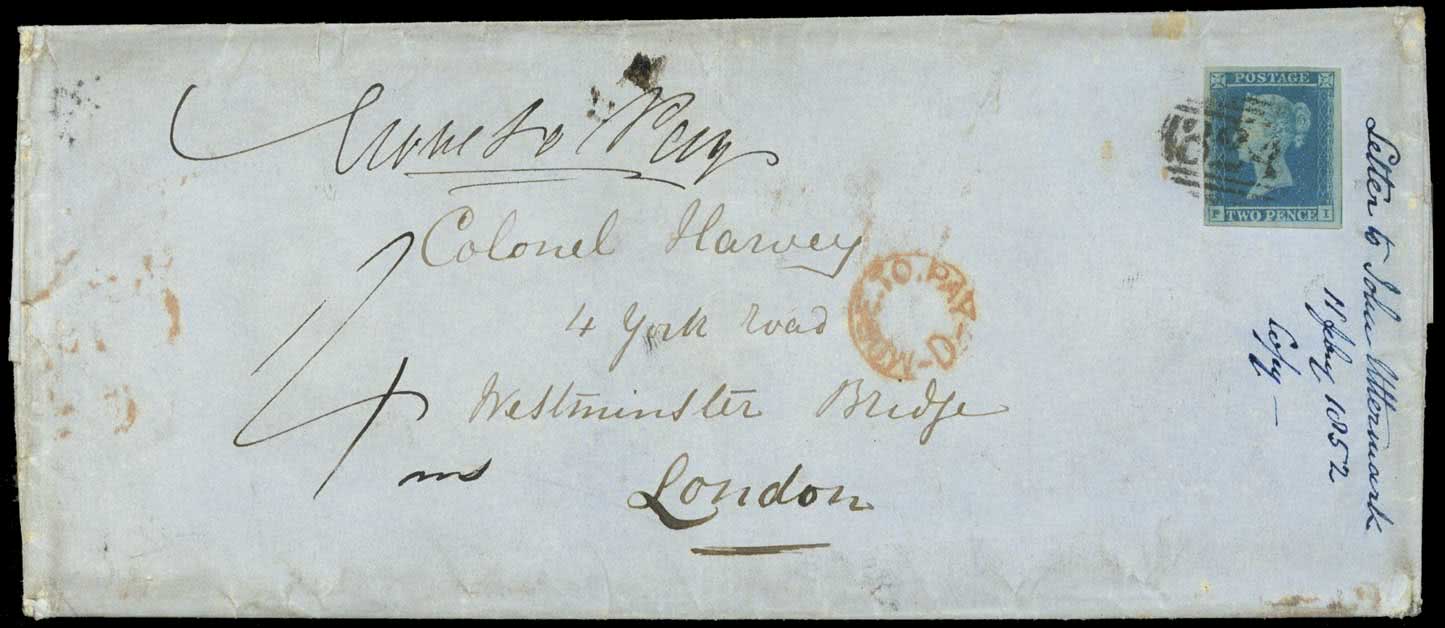 More to Pay
Colonel Harvey
4 York Road
Westminster Bridge
London
4
POSTAGE
P TWO PENCE I
MORE.TO.PAY-O-
Letter to John Uttermark
11 Feby 1852
Copy —